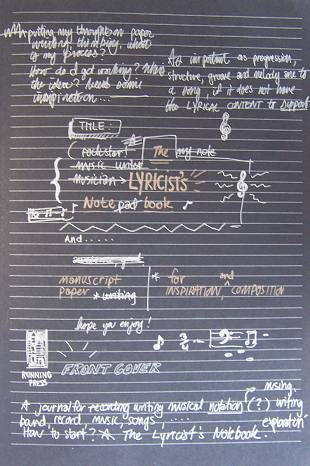 putting my thoughts on paper
writing, thinking, what
is my process?
How do I get writing?
the ideas? need some
inspiration...
As important as progression,
structure, groove and melody are to
a song, if it does not have
the LYRICAL CONTENT to support
TITLE:
rockstar! The my note
music writer
musician > LYRICIST'S
Note pad book
And.....
manuscript
paper * writing
* for and
INSPIRATION, COMPOSITION
hope you enjoy!
3/4
RUNNING
PRESS
FRONT COVER
musing,
A journal for recording writing musical notation (?) writing
band, record, music, songs ..... exploration
How to start? A. The Lyricist's Notebook.